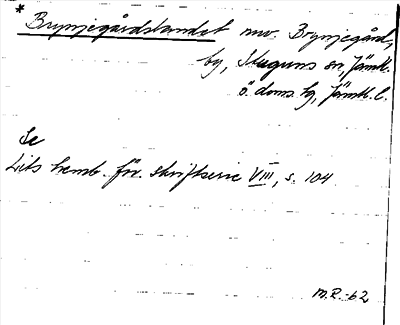 * Brynjegårdslandet nuv. Brynjegård,
by, Stuguns sn, Jämtl.
ö. doms. hg, Jämtl. l.
Se
Lits hemb. för. skriftserie VIII, s. 104
M.R.-62